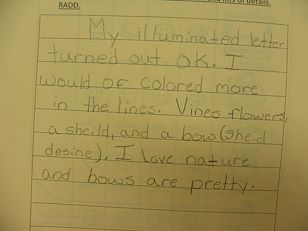 and lots of details.
RADD.
My illuminated letter
turned out OK. I
would of colored more
in the lines. Vines flowers,
a sheild, and a bow (sheild
desine). I love nature
and bows are pretty.